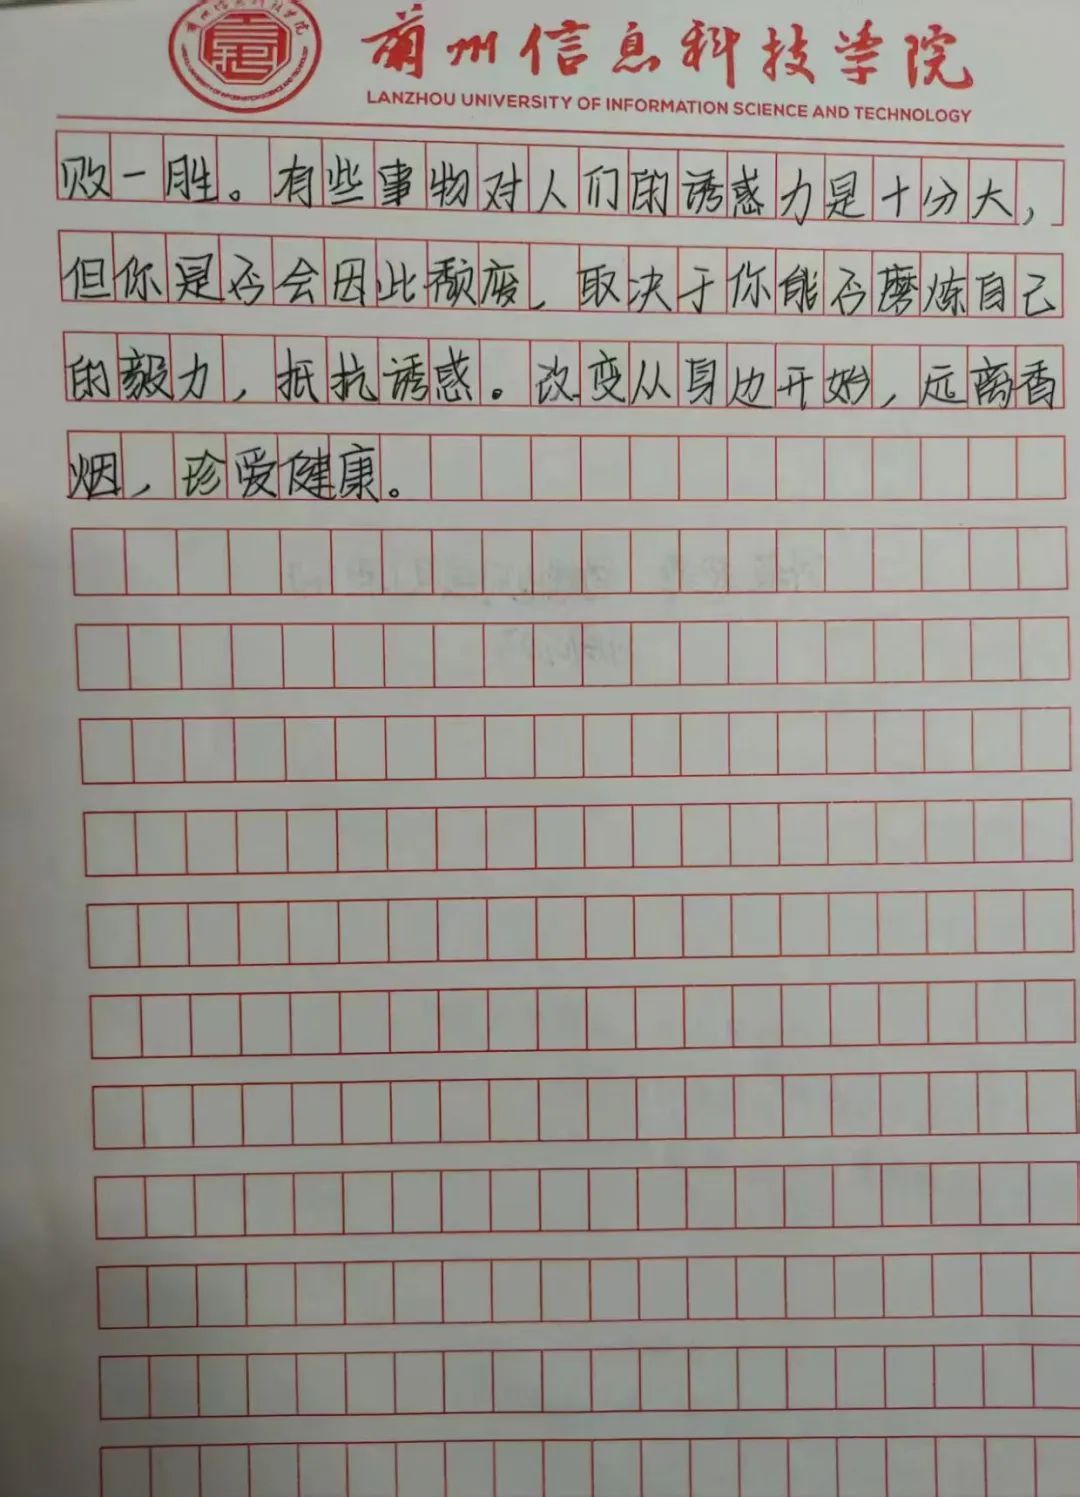 兰州信息科技学院
兰州信息科技学院
LANZHOU UNIVERSITY OF INFORMATION SCIENCE AND TECHNOLOGY
败一胜。有些事物对人们的诱惑力是十分大，
但你是否会因此颓废，取决于你能否磨炼自己
的毅力，抵抗诱惑。改变从身边开始，远离香
烟，珍爱健康。